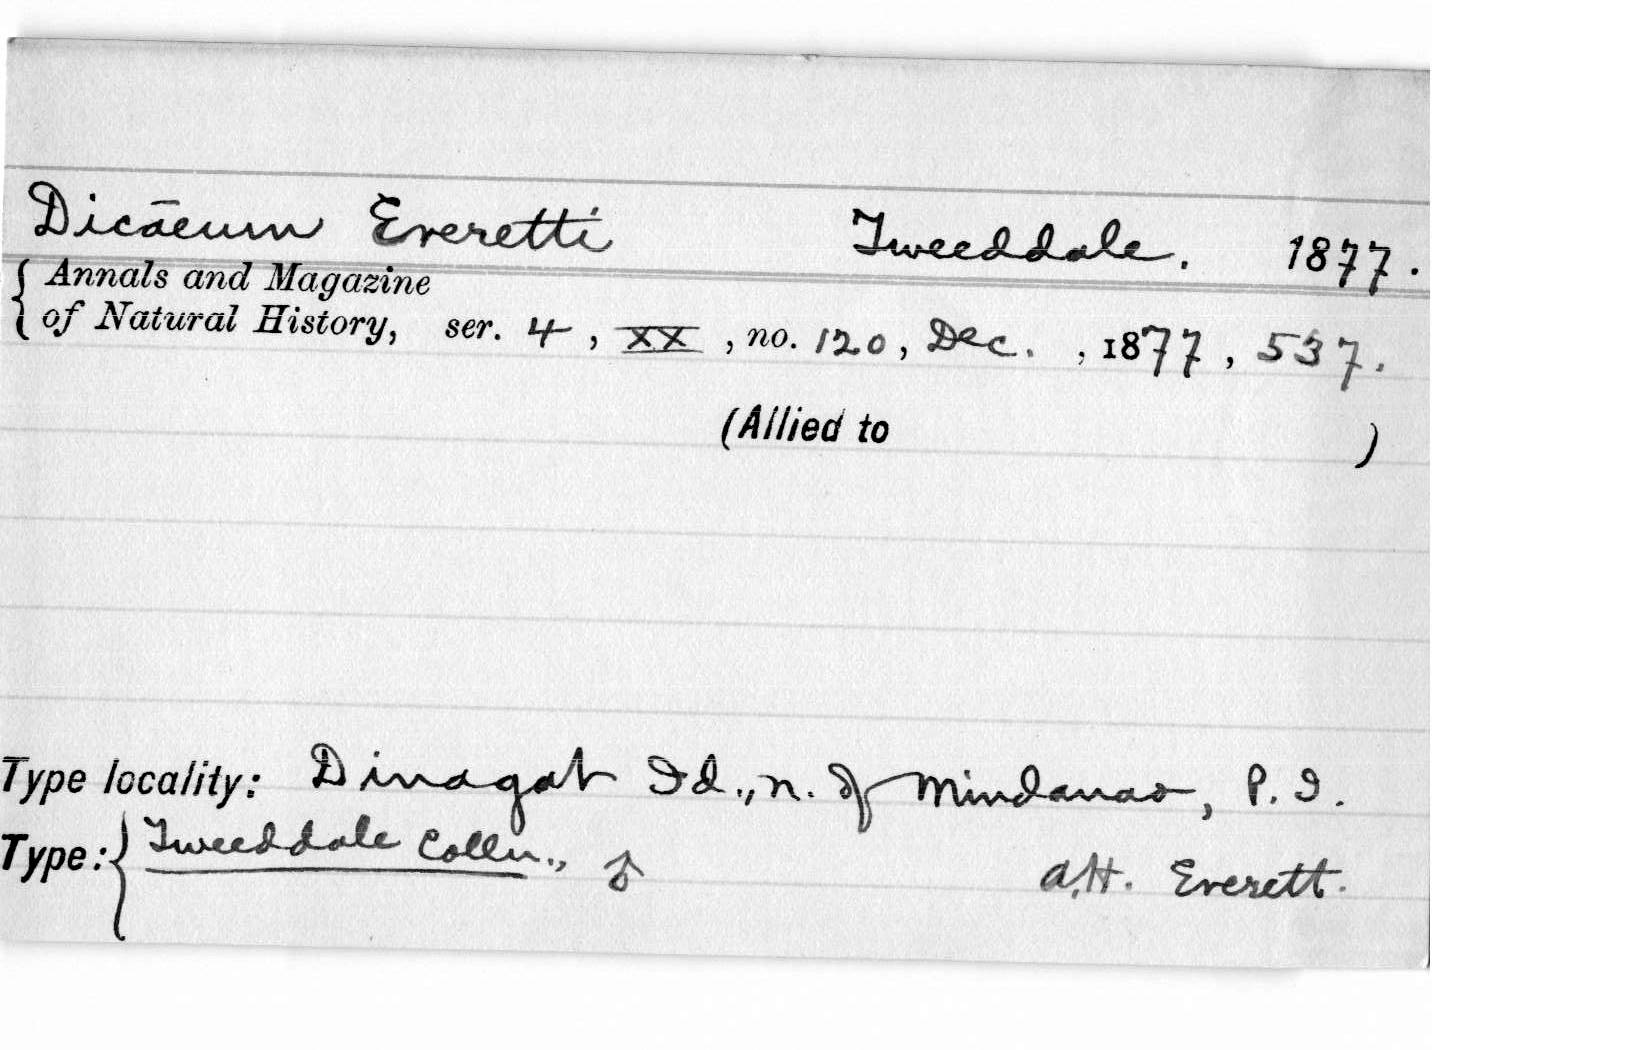 Dicāeum Everetti Tweeddale. 1877.
{ Annals and Magazine
of Natural History, ser. 4, XX, no. 120, Dec. , 1877, 537.
(Allied to )
Type locality: Dinagat Id., n. of Mindanao, P. I.
Type: { Tweeddale Colln., ♂ A.H. Everett.